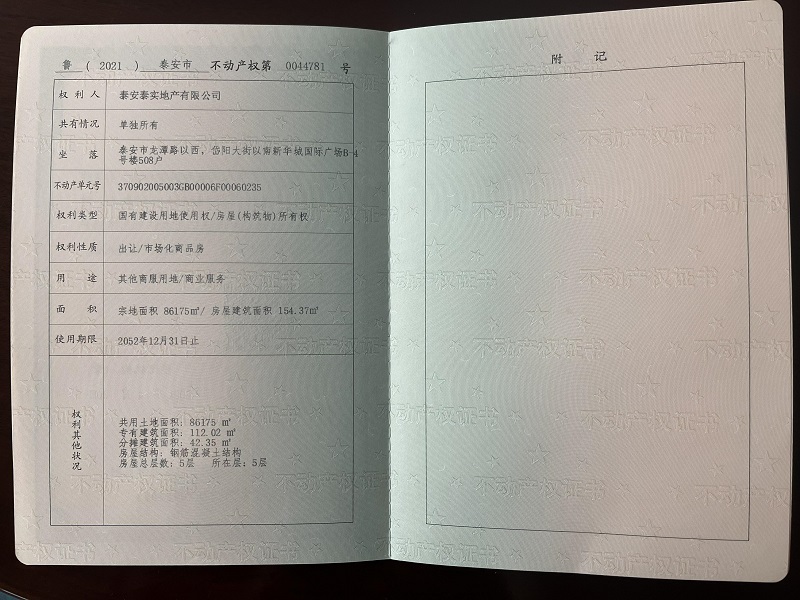 鲁 ( 2021 ) 泰安市 不动产权第 0044781 号
权利人 泰安泰实地产有限公司
共有情况 单独所有
坐落 泰安市龙潭路以西，岱阳大街以南新华城国际广场B-4
号楼508户
不动产单元号 370902005003GB00006F00060235
权利类型 国有建设用地使用权/房屋(构筑物)所有权
权利性质 出让/市场化商品房
用途 其他商服用地/商业服务
面积 宗地面积 86175㎡/ 房屋建筑面积 154.37㎡
使用期限 2052年12月31日止
权利其他状况
共用土地面积：86175 ㎡
专有建筑面积：112.02 ㎡
分摊建筑面积：42.35 ㎡
房屋结构：钢筋混凝土结构
房屋总层数：5层 所在层：5层
附记
不动产权证书